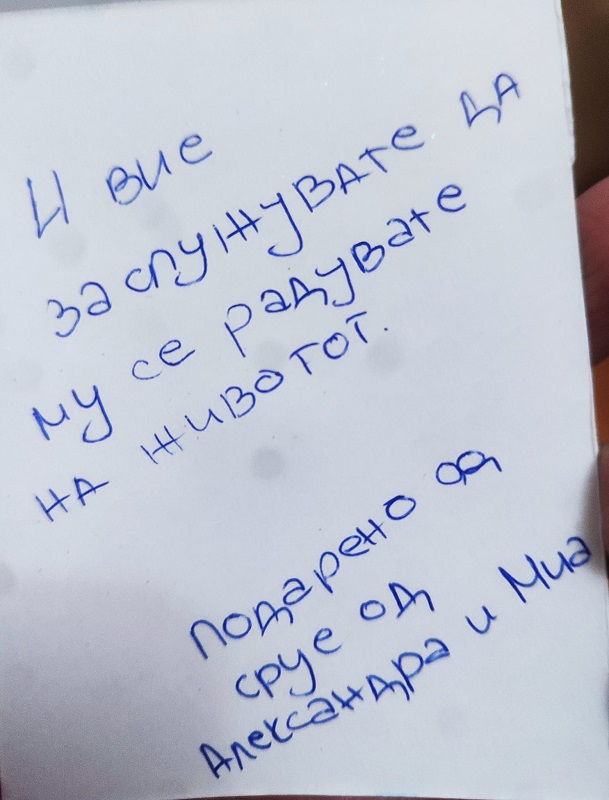 И вие
заслужувате да
му се радувате
на животот.
подарено од
срце од
Александра и Миа